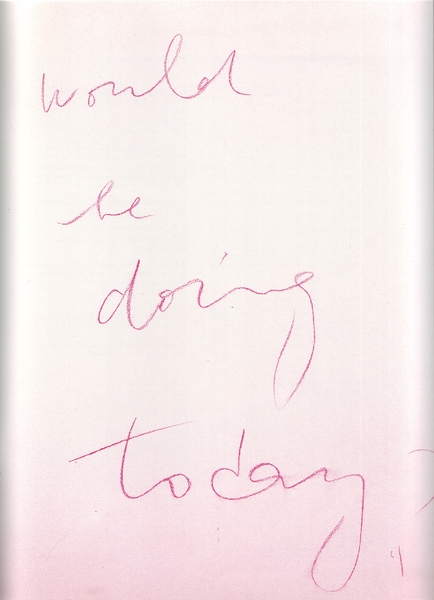 would
he
doing
today?